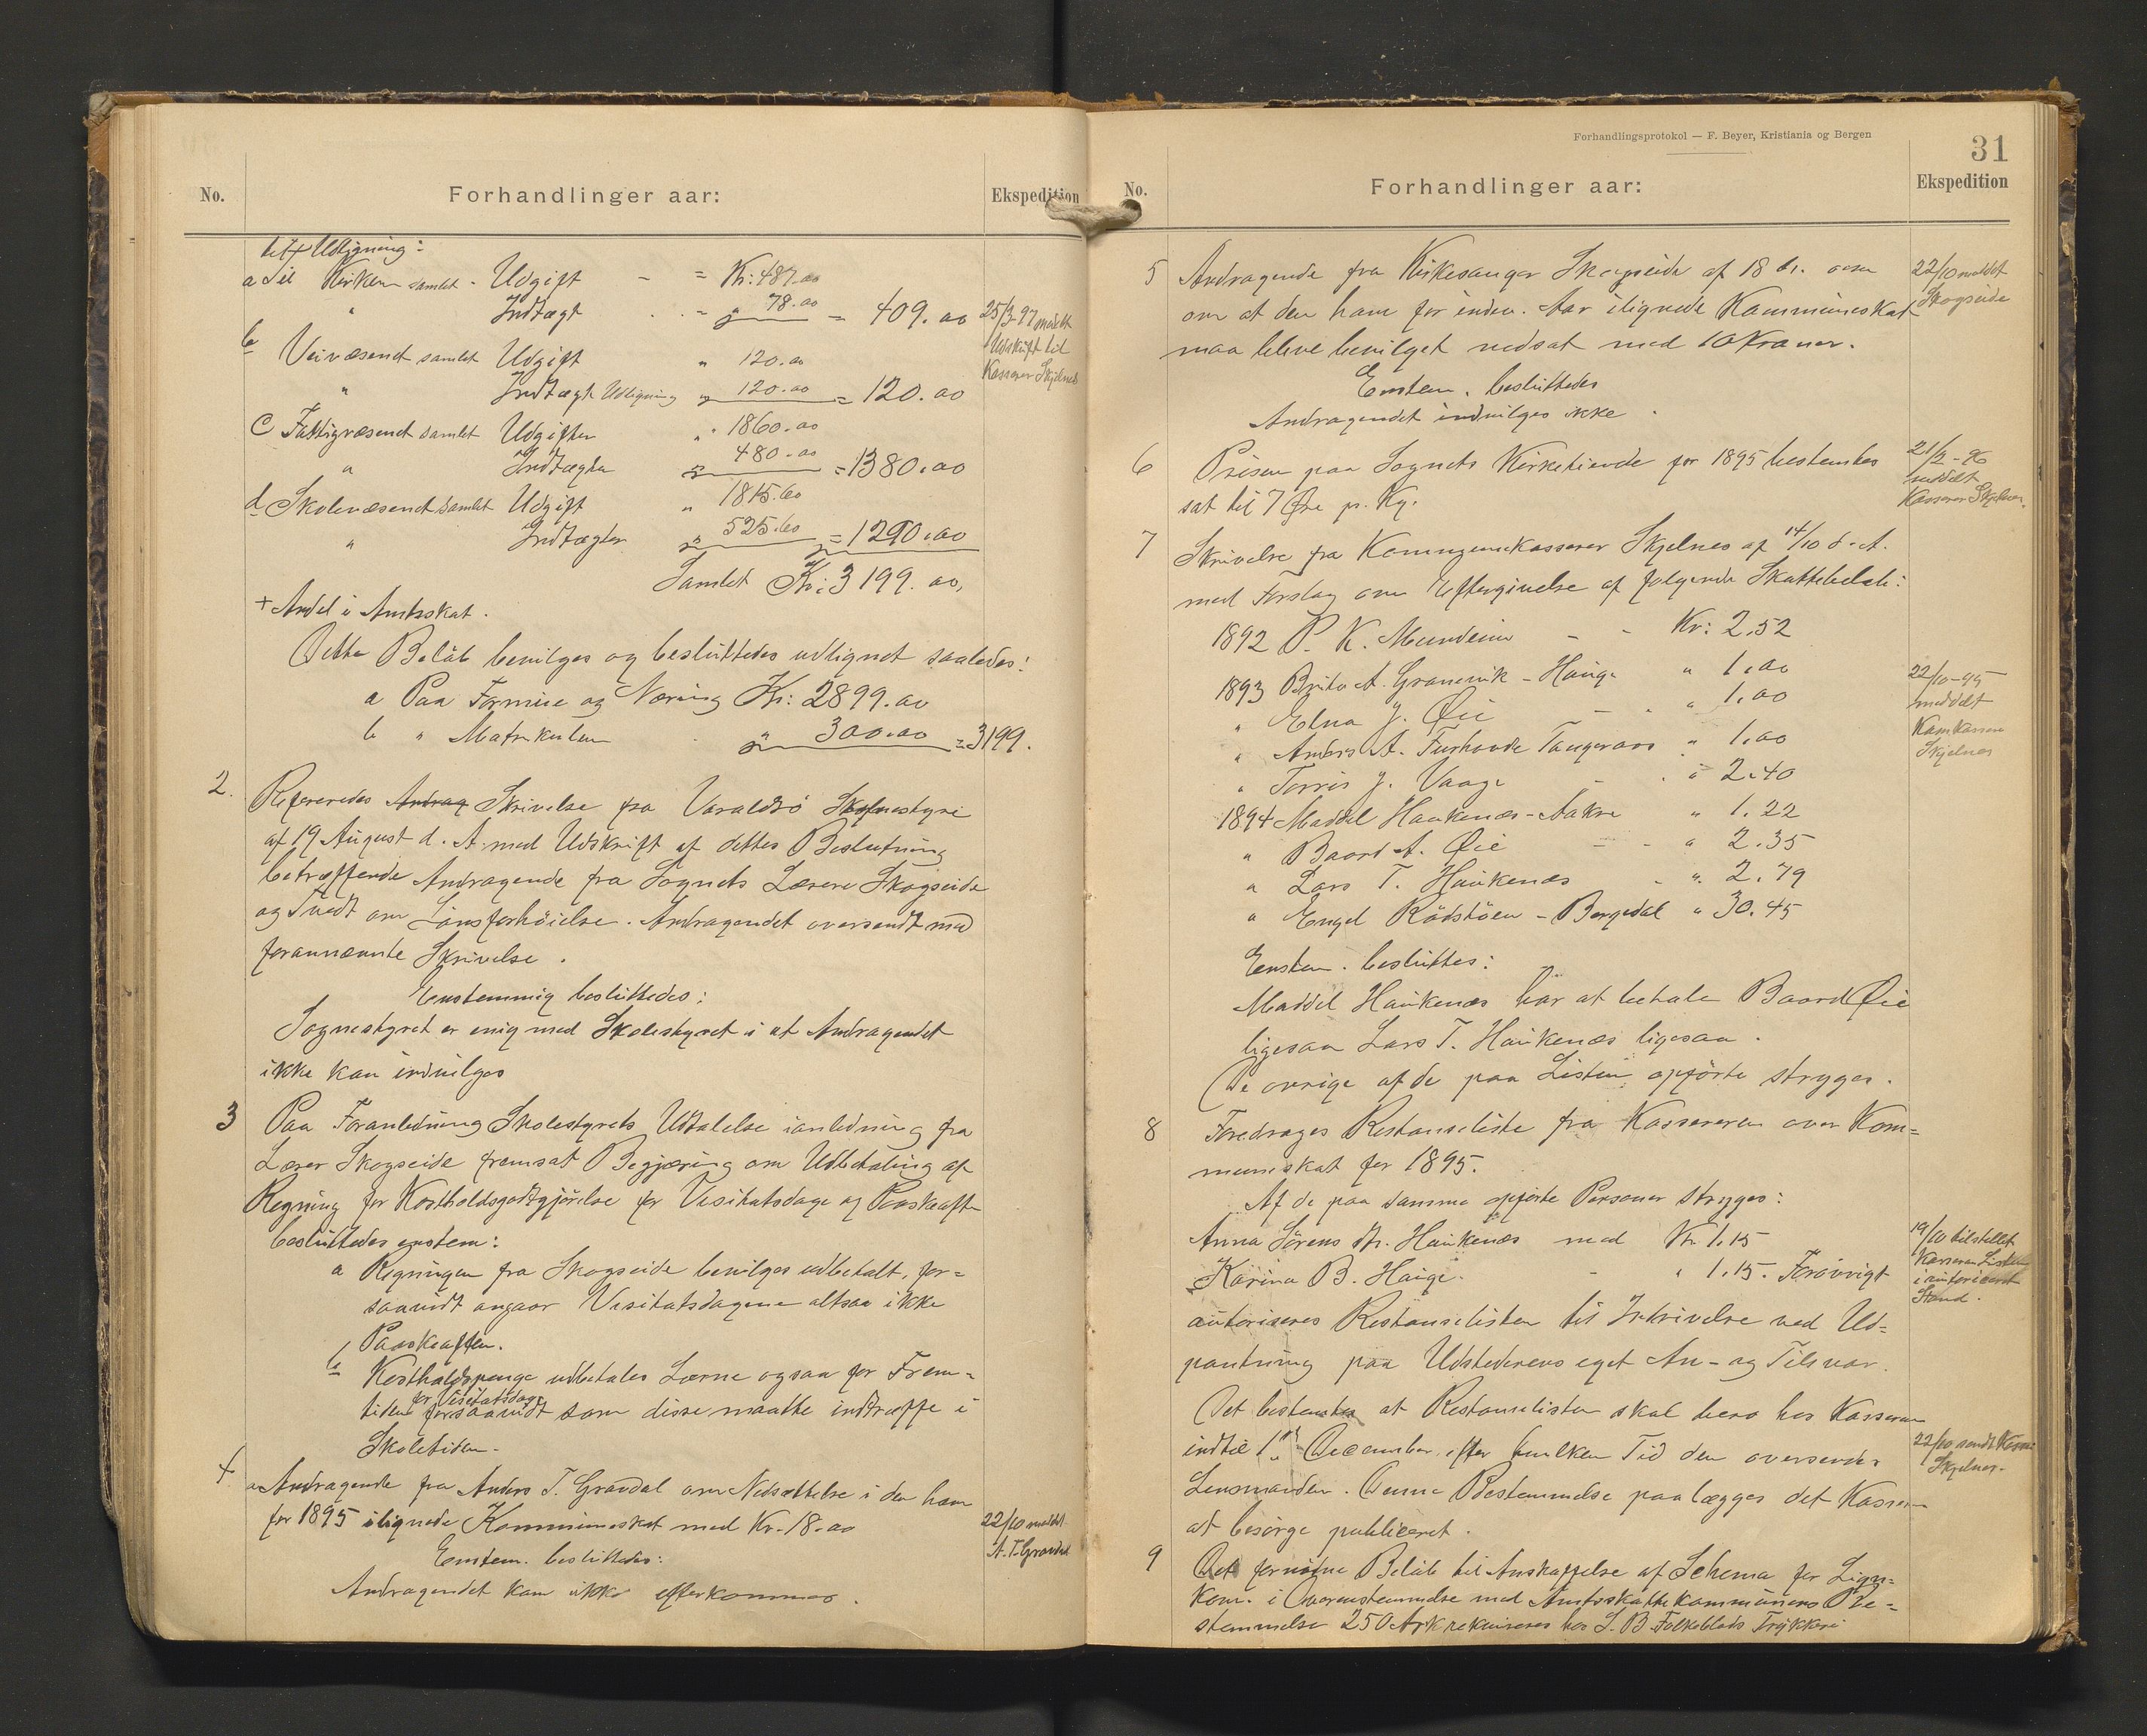 No.
Forhandlinger aar:
Ekspedition
Udligning:
a Til Kirken samlet - Udgift - = Kr: 487.00
" Indtægt - " 78.00 = 409.00
b Veivæsenet samlet Udgift " 120.00
" Indtægt Udligning " 120.00 = 120.00
c Fattigvæsenet samlet Udgifter " 1860.00
" Indtægter " 480.00 = 1380.00
d Skolevæsenet samlet Udgift " 1815.60
" Indtægter " 525.60 = 1290.00
Samlet Kr: 3199.00,
+ Andel i Amtsskat.
Dette Beløb bevilges og besluttedes udlignet saaledes:
a Paa Formue og Næring Kr: 2899.00
b " Matrikulen " 300.00 = 3199.
25/3-97 meddt
Udskrift til
Kasserer Skjelnes
2. Refereredes Andrag Skrivelse fra Varaldsø Skolestyre
af 19 August d. A. med Udskrift af dettes Beslutning
betræffende Andragende fra Sognets Lærere Skogseide
og Tvedt om Lønsforhøielse. Andragendet oversendt med
forannævnte Skrivelse.
Enstemmig besluttedes:
Sognestyret er enig med Skolestyret i at Andragendet
ikke kan indvilges
3 Paa Foranledning Skolestyrets Udtalelse i anledning fra
Lærer Skogseide fremsat Begjæring om Udbetaling af
Regning for Kostholdsgodtgjørelse for Visitatsdage og Paaskeaften
besluttedes enstem:
a Regningen fra Skogseide bevilges udbetalt, for=
saavidt angaar Visitatsdagene altsaa ikke
Paaskeaften.
b Kostholdspenge udbetales Lærerne ogsaa for Frem=
for Visitatsdage
tiden forsaavidt som disse maatte indtræffe i
Skoletiden.
4 Andragende fra Anders T. Gravdal om Nedsættelse i den ham
for 1895 ilignede Kommuneskat med Kr. 18.00
Enstem. besluttedes:
Andragendet kan ikke efterkommes.
22/10 meddt
A. T. Gravdal
Forhandlingsprotokol — F. Beyer, Kristiania og Bergen
31
No.
Forhandlinger aar:
Ekspedition
5 Andragende fra Kirkesanger Skogseide af 18 ds.
om at den ham for indev. Aar ilignede Kommuneskat
maa blive bevilget nedsat med 10 Kroner.
Enstem. besluttedes
Andragendet indvilges ikke.
22/10 meddt
Skogseide
6 Prisen paa Sognets Kirketiende for 1895 bestemtes
sat til 7 Øre pr. Kg.
meddelt
Kasserer Skjelnes.
7 Skrivelse fra Kommunekasserer Skjelnes af 14/10 d. A.
med Forslag om Eftergivelse af følgende Skattebeløb:
1892 P. K. Mundheim - - Kr: 2.52
1893 Brita A. Granevik - Hauge " 1.00
" Elna J. Øie - " 1.00
" Anders A. Furhovde Tangeraas " 1.00
" Torris J. Vaage - " 2.40
1894 Maddel Haukenæs - Aakre " 1.22
" Baard A. Øie - - " 2.35
" Lars T. Haukenæs - " 2.79
" Engel Rødstøen - Bergedal " 30.45
22/10-95
meddelt
Kom Kasserer
Skjelnes
Enstem. besluttes:
Maddel Haukenæs bør at betale Baard Øie
ligesaa Lars T. Haukenæs ligesaa.
De øvrige af de paa Listen opførte stryges.
8 Foredrages Restanseliste fra Kassereren over Kom=
muneskat for 1895.
Af de paa samme opførte Personer stryges:
Anna Sørens dtr. Haukenæs med Kr. 1.15
Karina B. Hauge. - " 1.15. Forøvrigt
autoriseres Restanselisten til Inkrivelse ved Ud=
pantning paa Udstederens eget An- og Tilsvar.
19/10 tilstillet
Kassereren Listen
i autoriseret
Stand.
Det bestemtes at Restanselisten skal bero hos Kassereren
indtil 1ste December, efter hvilken Tid den oversendes
Lensmanden. Denne Bestemmelse paalægges det Kassereren
at besørge publiceret.
22/10 sendt Kasse
Skjelnes.
9 Det fornødne Beløb til Anskaffelse af Schema for Lign=
kom. i Overensstemmelse med Amtsskattekommunens Be=
stemmelse 250 Ark rekvireres hos S. B. Folkeblads Trykkeri